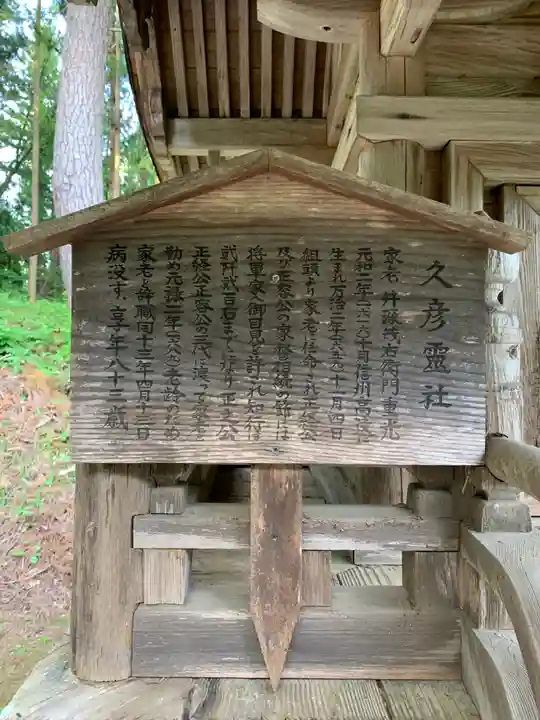 久彦霊社
家老 井深茂右衛門重光
元和二年(一六一六)十月信州高遠に
生まれ万治二年(一六五九)十一月四日
組頭より家老に任命され正経公
及び正容公の家督相続の節は
将軍家へ御目見を許され知行は
弐阡弐百石までになり 正之公
正経公正容公の三代に渡って家老を
勤め元禄二年(一六八九)老齢のため
家老を辞職同十三年四月十三日
病没す、享年八十三歳